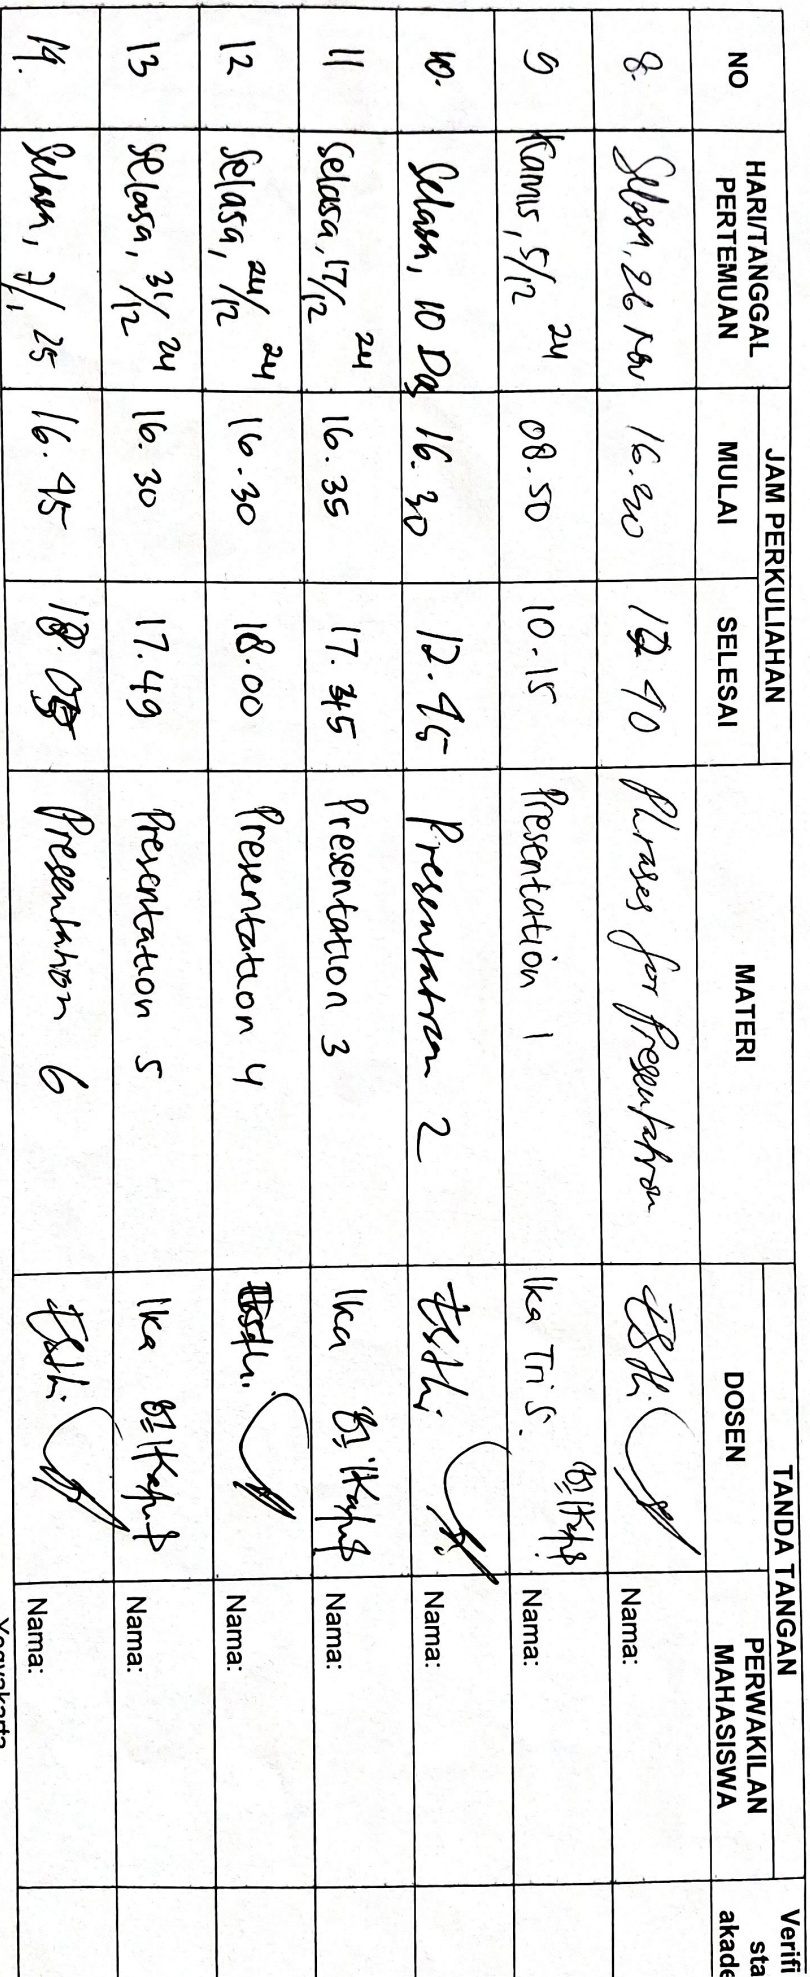 NO HARI/TANGGAL PERTEMUAN JAM PERKULIAHAN MATERI TANDA TANGAN Verifi
MULAI SELESAI DOSEN PERWAKILAN MAHASISWA sta
akade
8. Selasa, 26 Nov 16.20 17.40 Phrases for Presentation Esthi Nama:
9 Kamis, 5/12 24 08.50 10.15 Presentation 1 Ika Tri S. Nama:
10. Selasa, 10 Des 16.30 17.45 Presentation 2 Esthi Nama:
11 Selasa, 17/12 24 16.35 17.45 Presentation 3 Ika Nama:
12 Selasa, 24/12 24 16.30 18.00 Presentation 4 Esthi. Nama:
13 Selasa, 31/12 24 16.30 17.49 Presentation 5 Ika Nama:
14. Selasa, 7/1 25 16.45 18.00 Presentation 6 Esthi Nama:
Yogyakarta